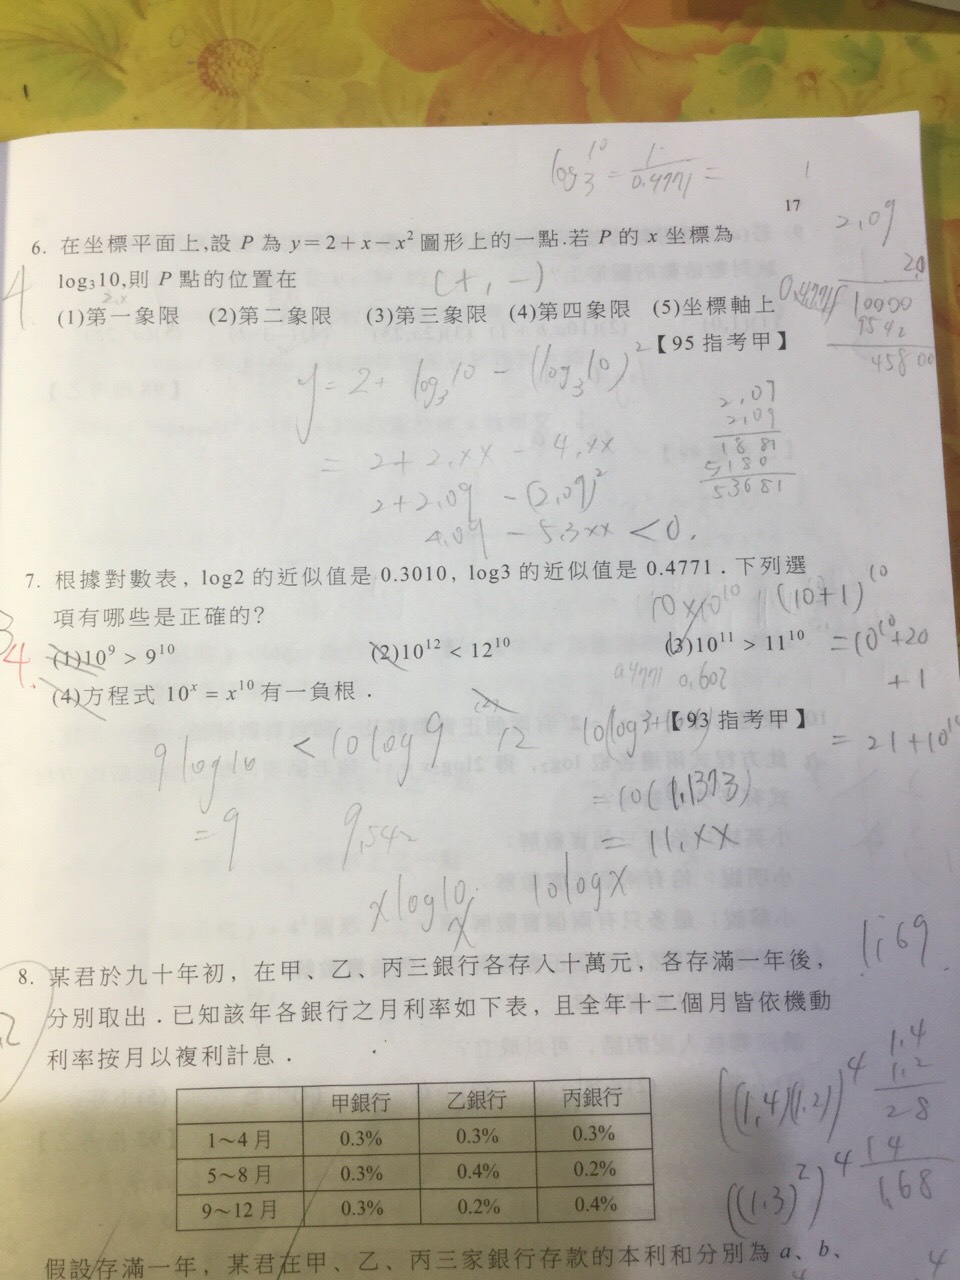 log₃10 = 1/0.4771 =
17
2.09
6. 在坐標平面上,設 P 為 y=2+x−x² 圖形上的一點.若 P 的 x 坐標為
log₃10,則 P 點的位置在
(+, −)
4
2.x
(1)第一象限 (2)第二象限 (3)第三象限 (4)第四象限 (5)坐標軸上
【95 指考甲】
0.4771
10000
9542
45800
y = 2 + log₃10 − (log₃10)²
= 2 + 2.xx − 4.xx
2 + 2.09 − (2.09)²
4.09 − 5.3xx < 0.
2.09
2.09
1881
5180
53681
7. 根據對數表, log2 的近似值是 0.3010, log3 的近似值是 0.4771 . 下列選
項有哪些是正確的?
10×10¹⁰
(10+1)¹⁰
3
4.
(1)10⁹ > 9¹⁰ (2)10¹² < 12¹⁰ (3)10¹¹ > 11¹⁰
= 10¹⁰+20
+1
0.4771 0.602
(4)方程式 10ˣ = x¹⁰ 有一負根 .
【93 指考甲】
= 21+10¹⁰
9log10 < 10log9
12
10(log3+
= 9
9.542
= 10(1.1373)
= 11.xx
xlog10
10logx
x
1.69
8. 某君於九十年初, 在甲、乙、丙三銀行各存入十萬元, 各存滿一年後,
分別取出 . 已知該年各銀行之月利率如下表, 且全年十二個月皆依機動
利率按月以複利計息 .
2
甲銀行 乙銀行 丙銀行
1～4 月 0.3% 0.3% 0.3%
5～8 月 0.3% 0.4% 0.2%
9～12 月 0.3% 0.2% 0.4%
((1.4)(1.2))⁴
1.4
1.2
28
14
1.68
((1.3)²)⁴
假設存滿一年, 某君在甲、乙、丙三家銀行存款的本利和分別為 a、b、
4